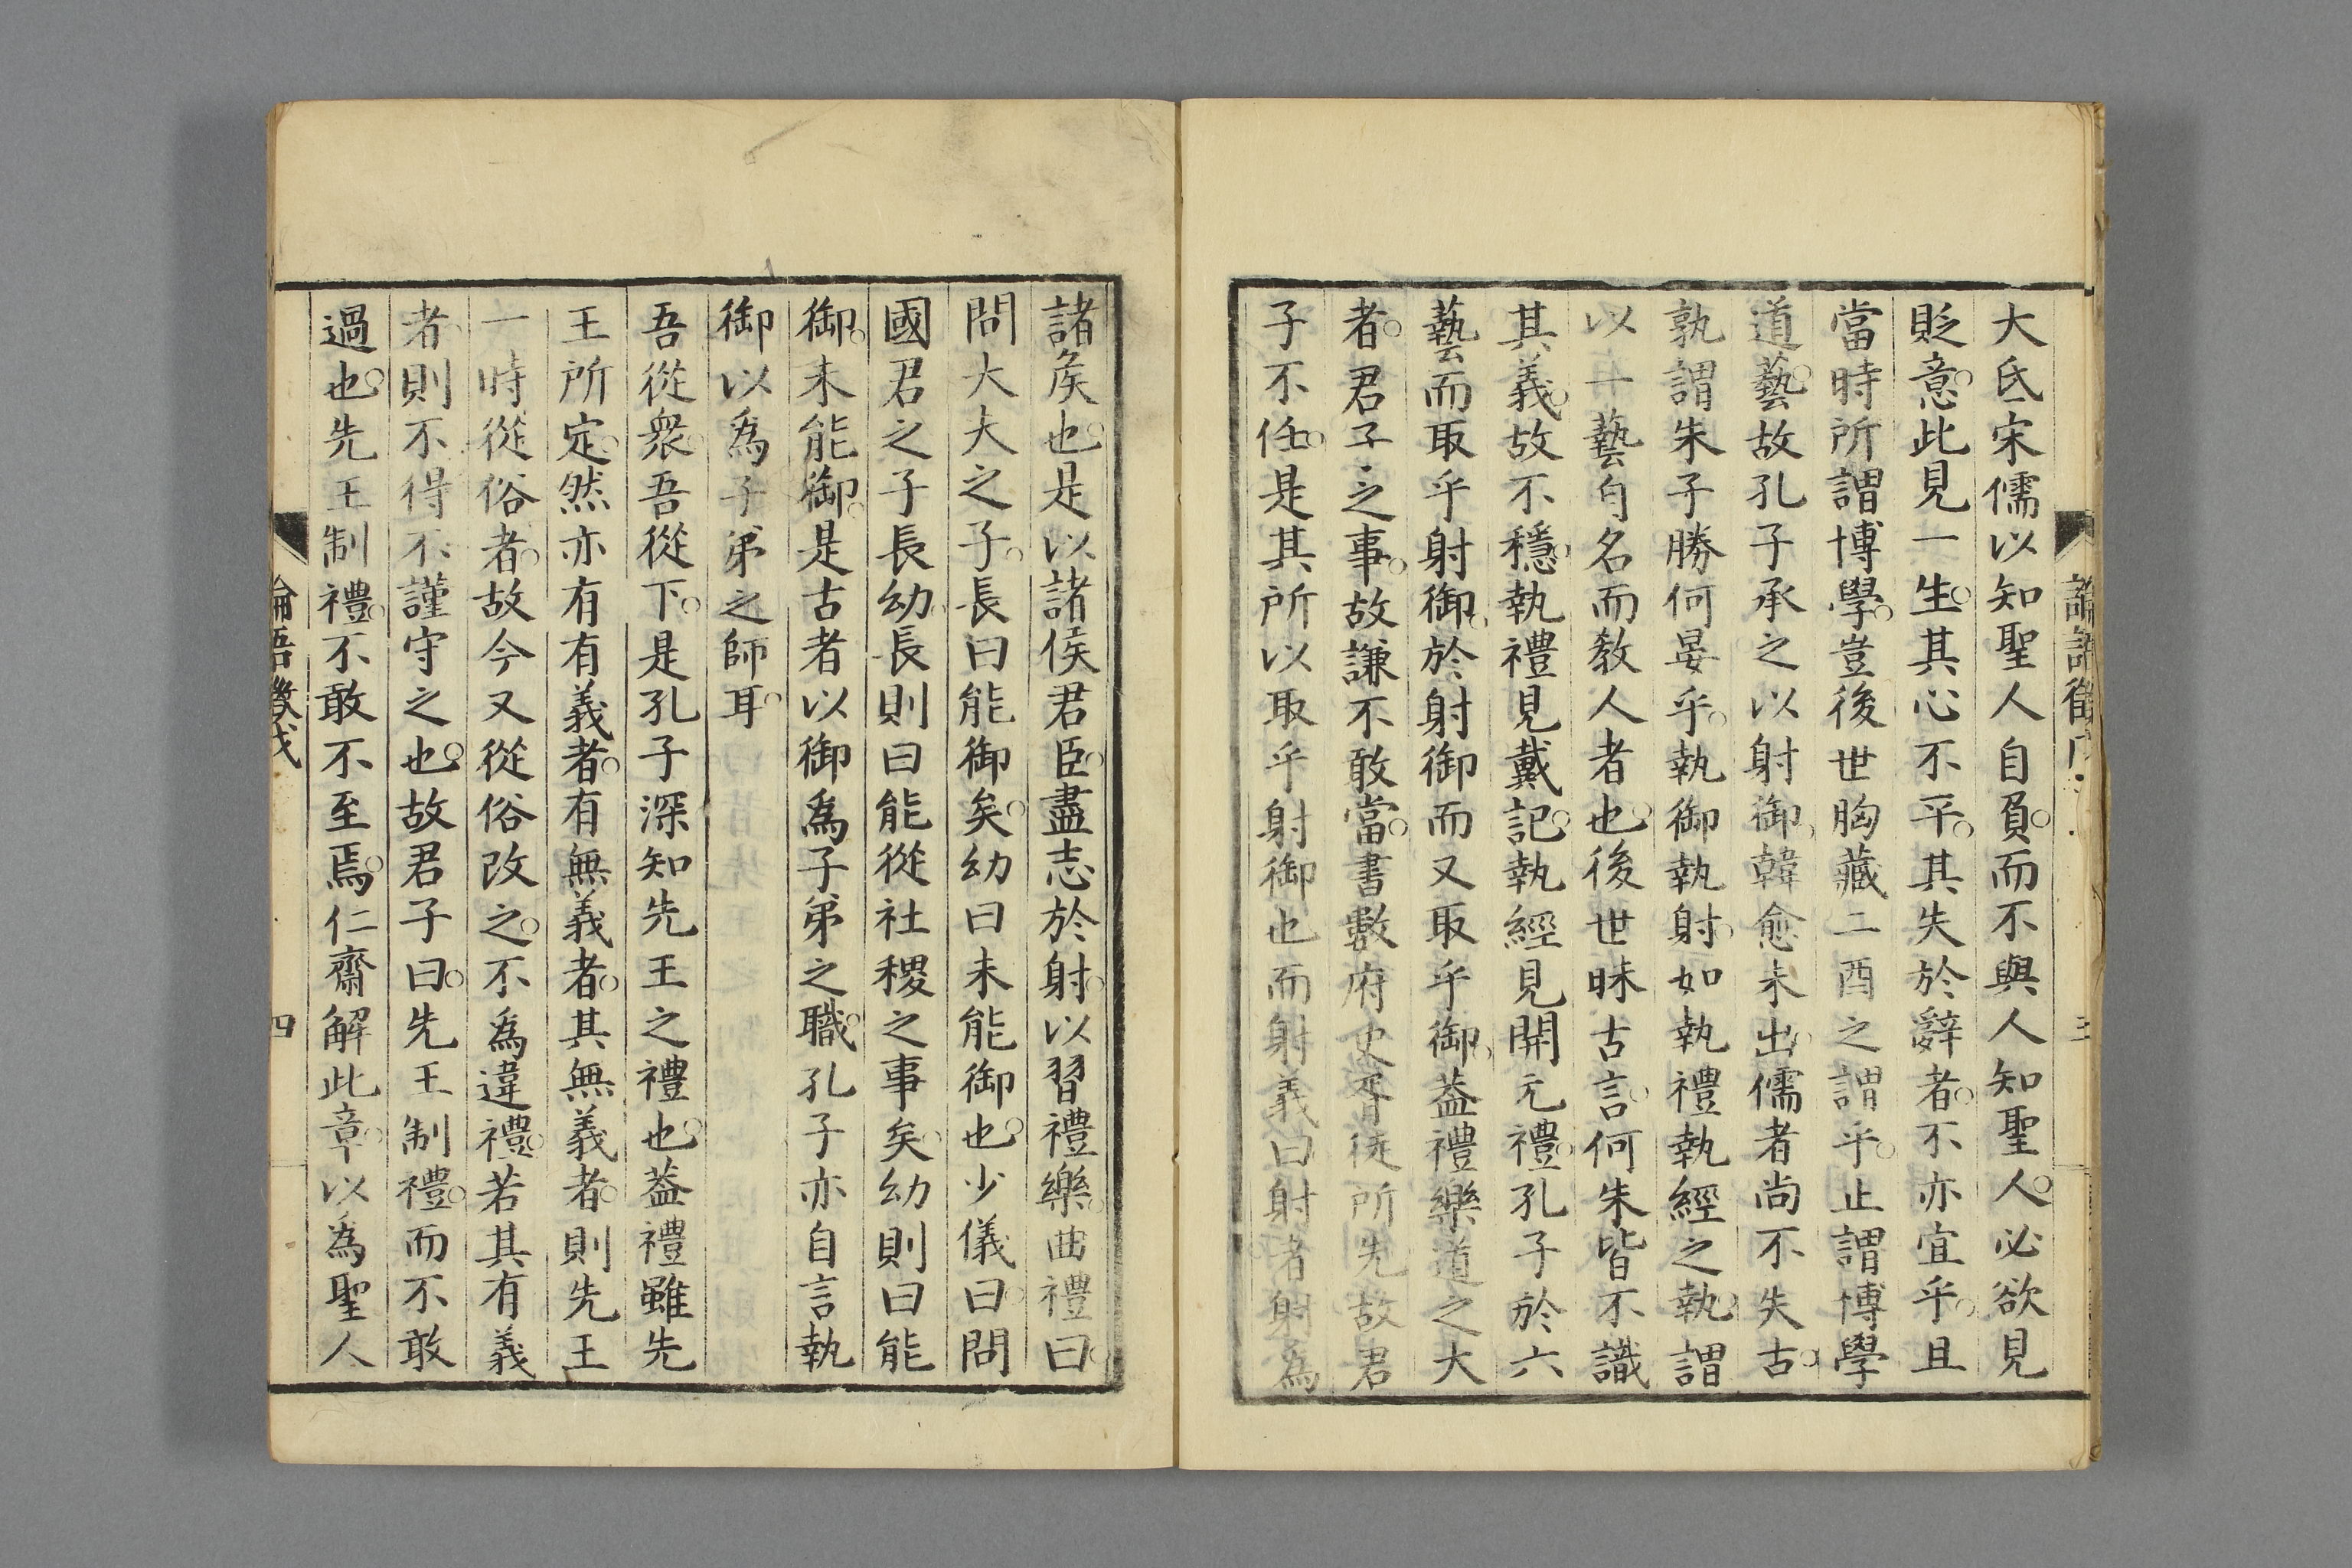 大氐宋儒以知聖人自負而不與人知聖人必欲見
貶意此見一生其心不平其失於辭者不亦宜乎且
當時所謂博學豈後世胸藏二酉之謂乎止謂博學
道藝故孔子承之以射御韓愈未出儒者尚不失古
孰謂朱子勝何晏乎執御執射如執禮執經之執謂
以一藝自名而敎人者也後世昧古言何朱皆不識
其義故不穩執禮見戴記執經見開元禮孔子於六
藝而取乎射御於射御而又取乎御葢禮樂道之大
者君子之事故謙不敢當書數府史胥徒所先故君
子不任是其所以取乎射御也而射義曰射者射為
諸矦也是以諸侯君臣盡志於射以習禮樂曲禮曰
問大夫之子長曰能御矣幼曰未能御也少儀曰問
國君之子長幼長則曰能從社稷之事矣幼則曰能
御未能御是古者以御爲子弟之職孔子亦自言執
御以爲子弟之師耳
吾從衆吾從下是孔子深知先王之禮也葢禮雖先
王所定然亦有有義者有無義者其無義者則先王
一時從俗者故今又從俗改之不爲違禮若其有義
者則不得不謹守之也故君子曰先王制禮而不敢
過也先王制禮不敢不至焉仁齋解此章以為聖人
四